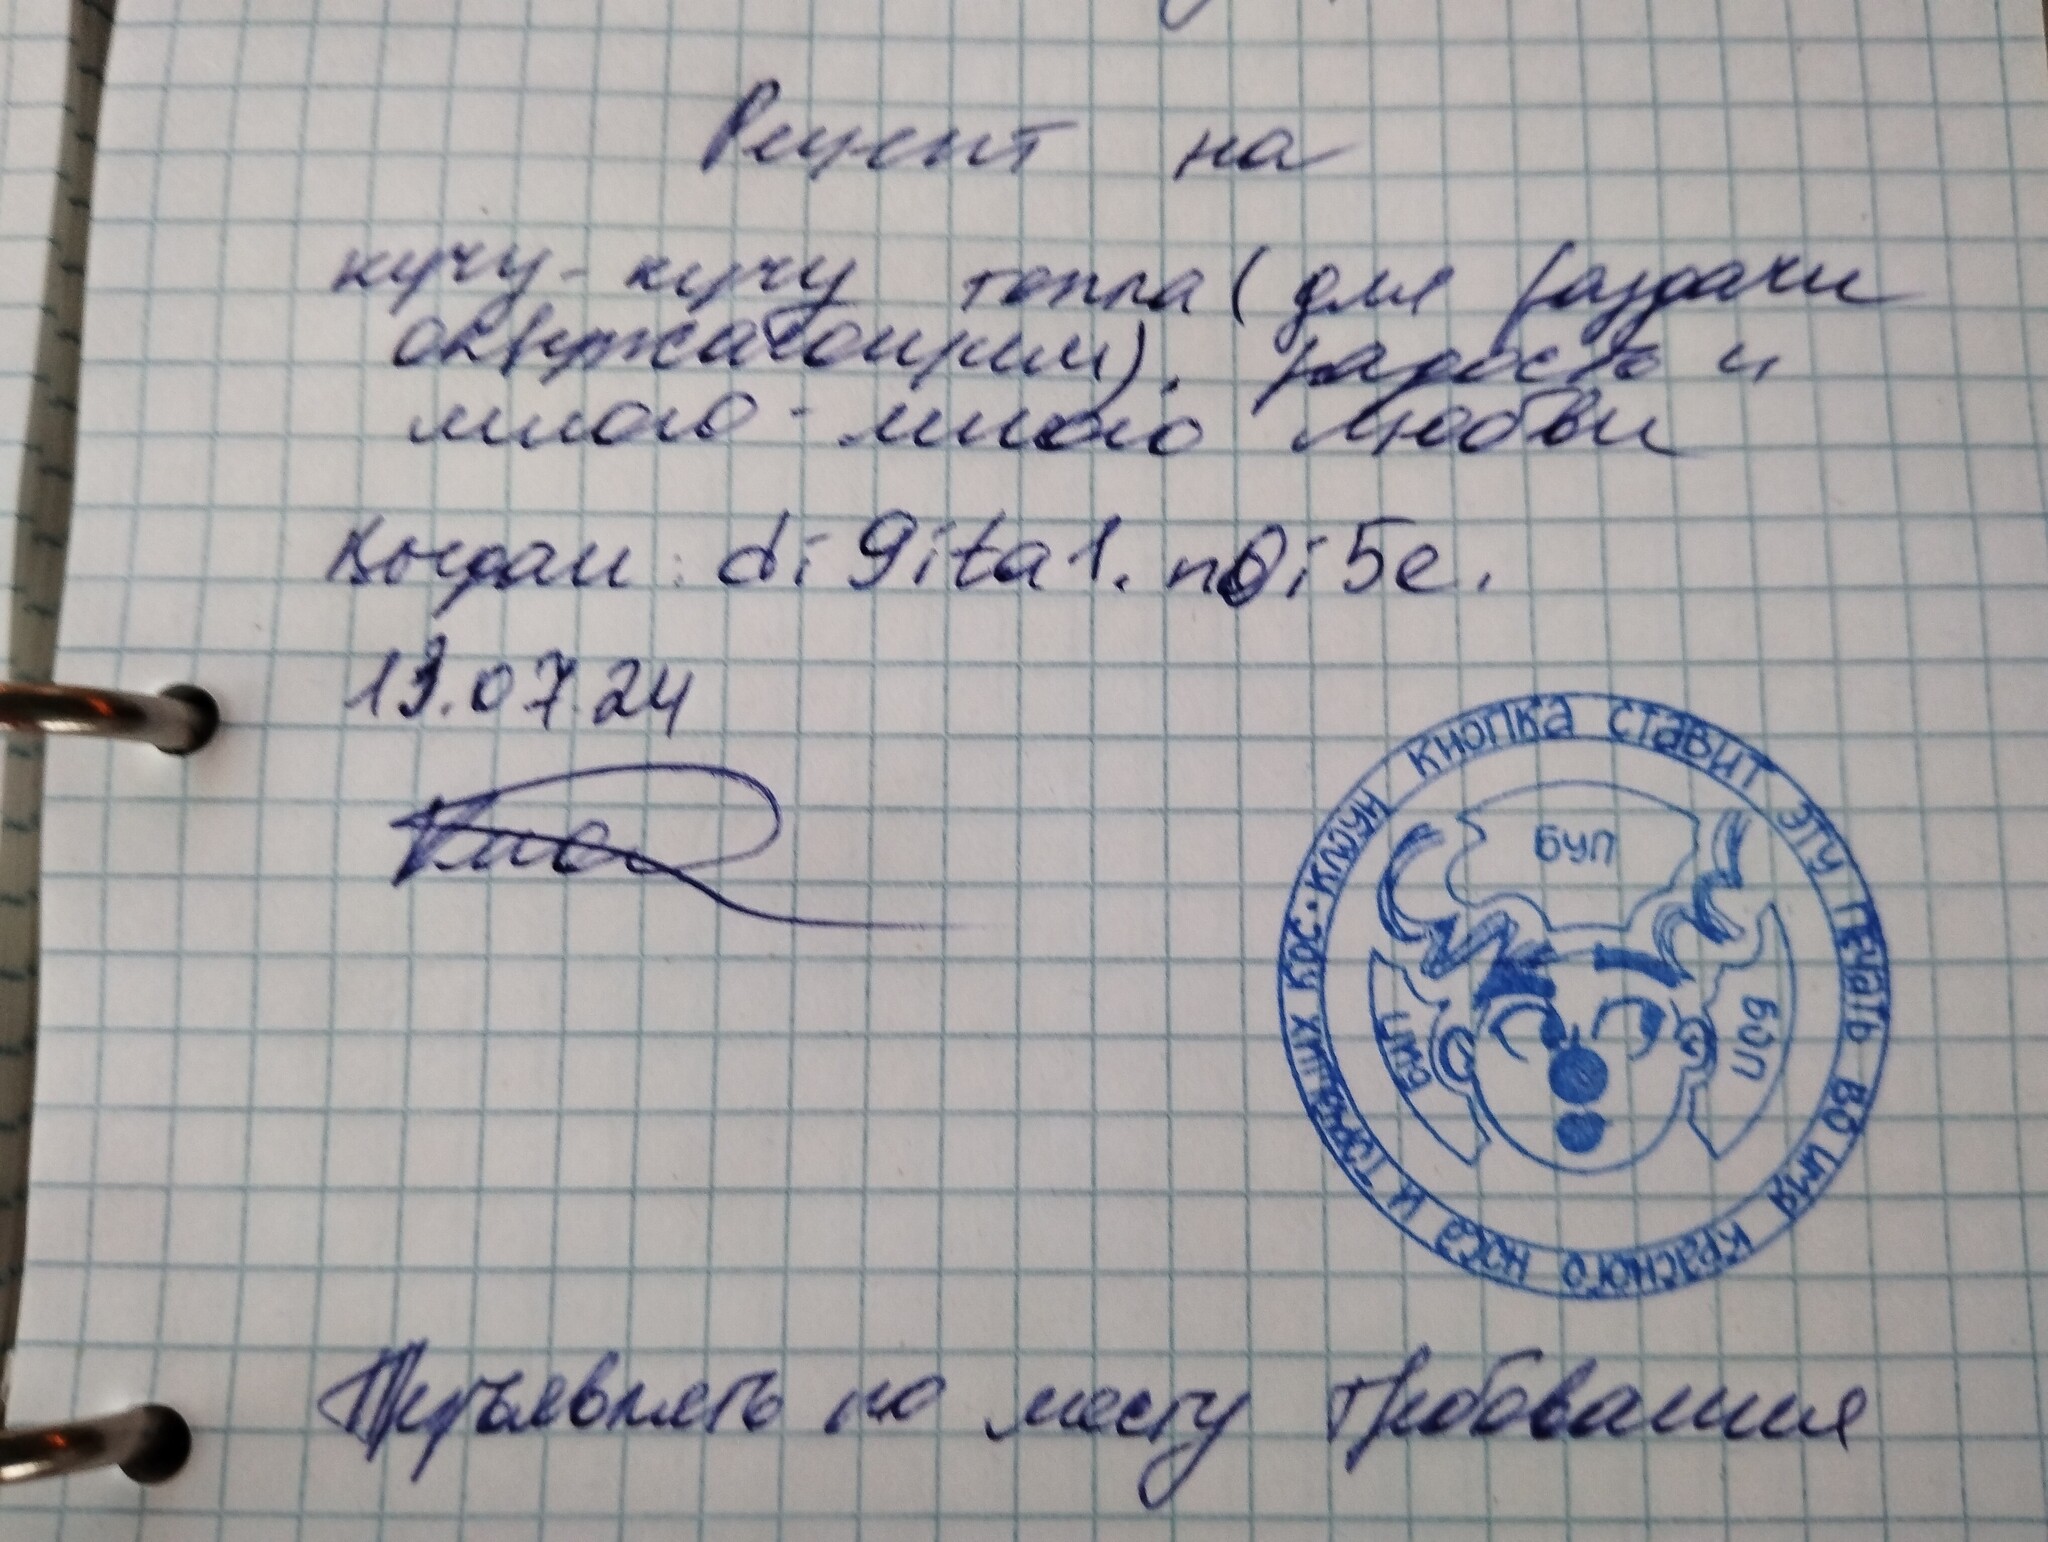 Рецепт на
кучу-кучу тепла (для раздачи
окружающим), радость и
много-много любви
Выдан: di9ita1.n0i5e.
13.07.24
КЛОУН КНОПКА СТАВИТ ЭТУ ПЕЧАТЬ ВО ИМЯ КРАСНОГО НОСА И ТОРЧАЩИХ КОС.
БУП
БИП
БОП
Предъявлять по месту требования